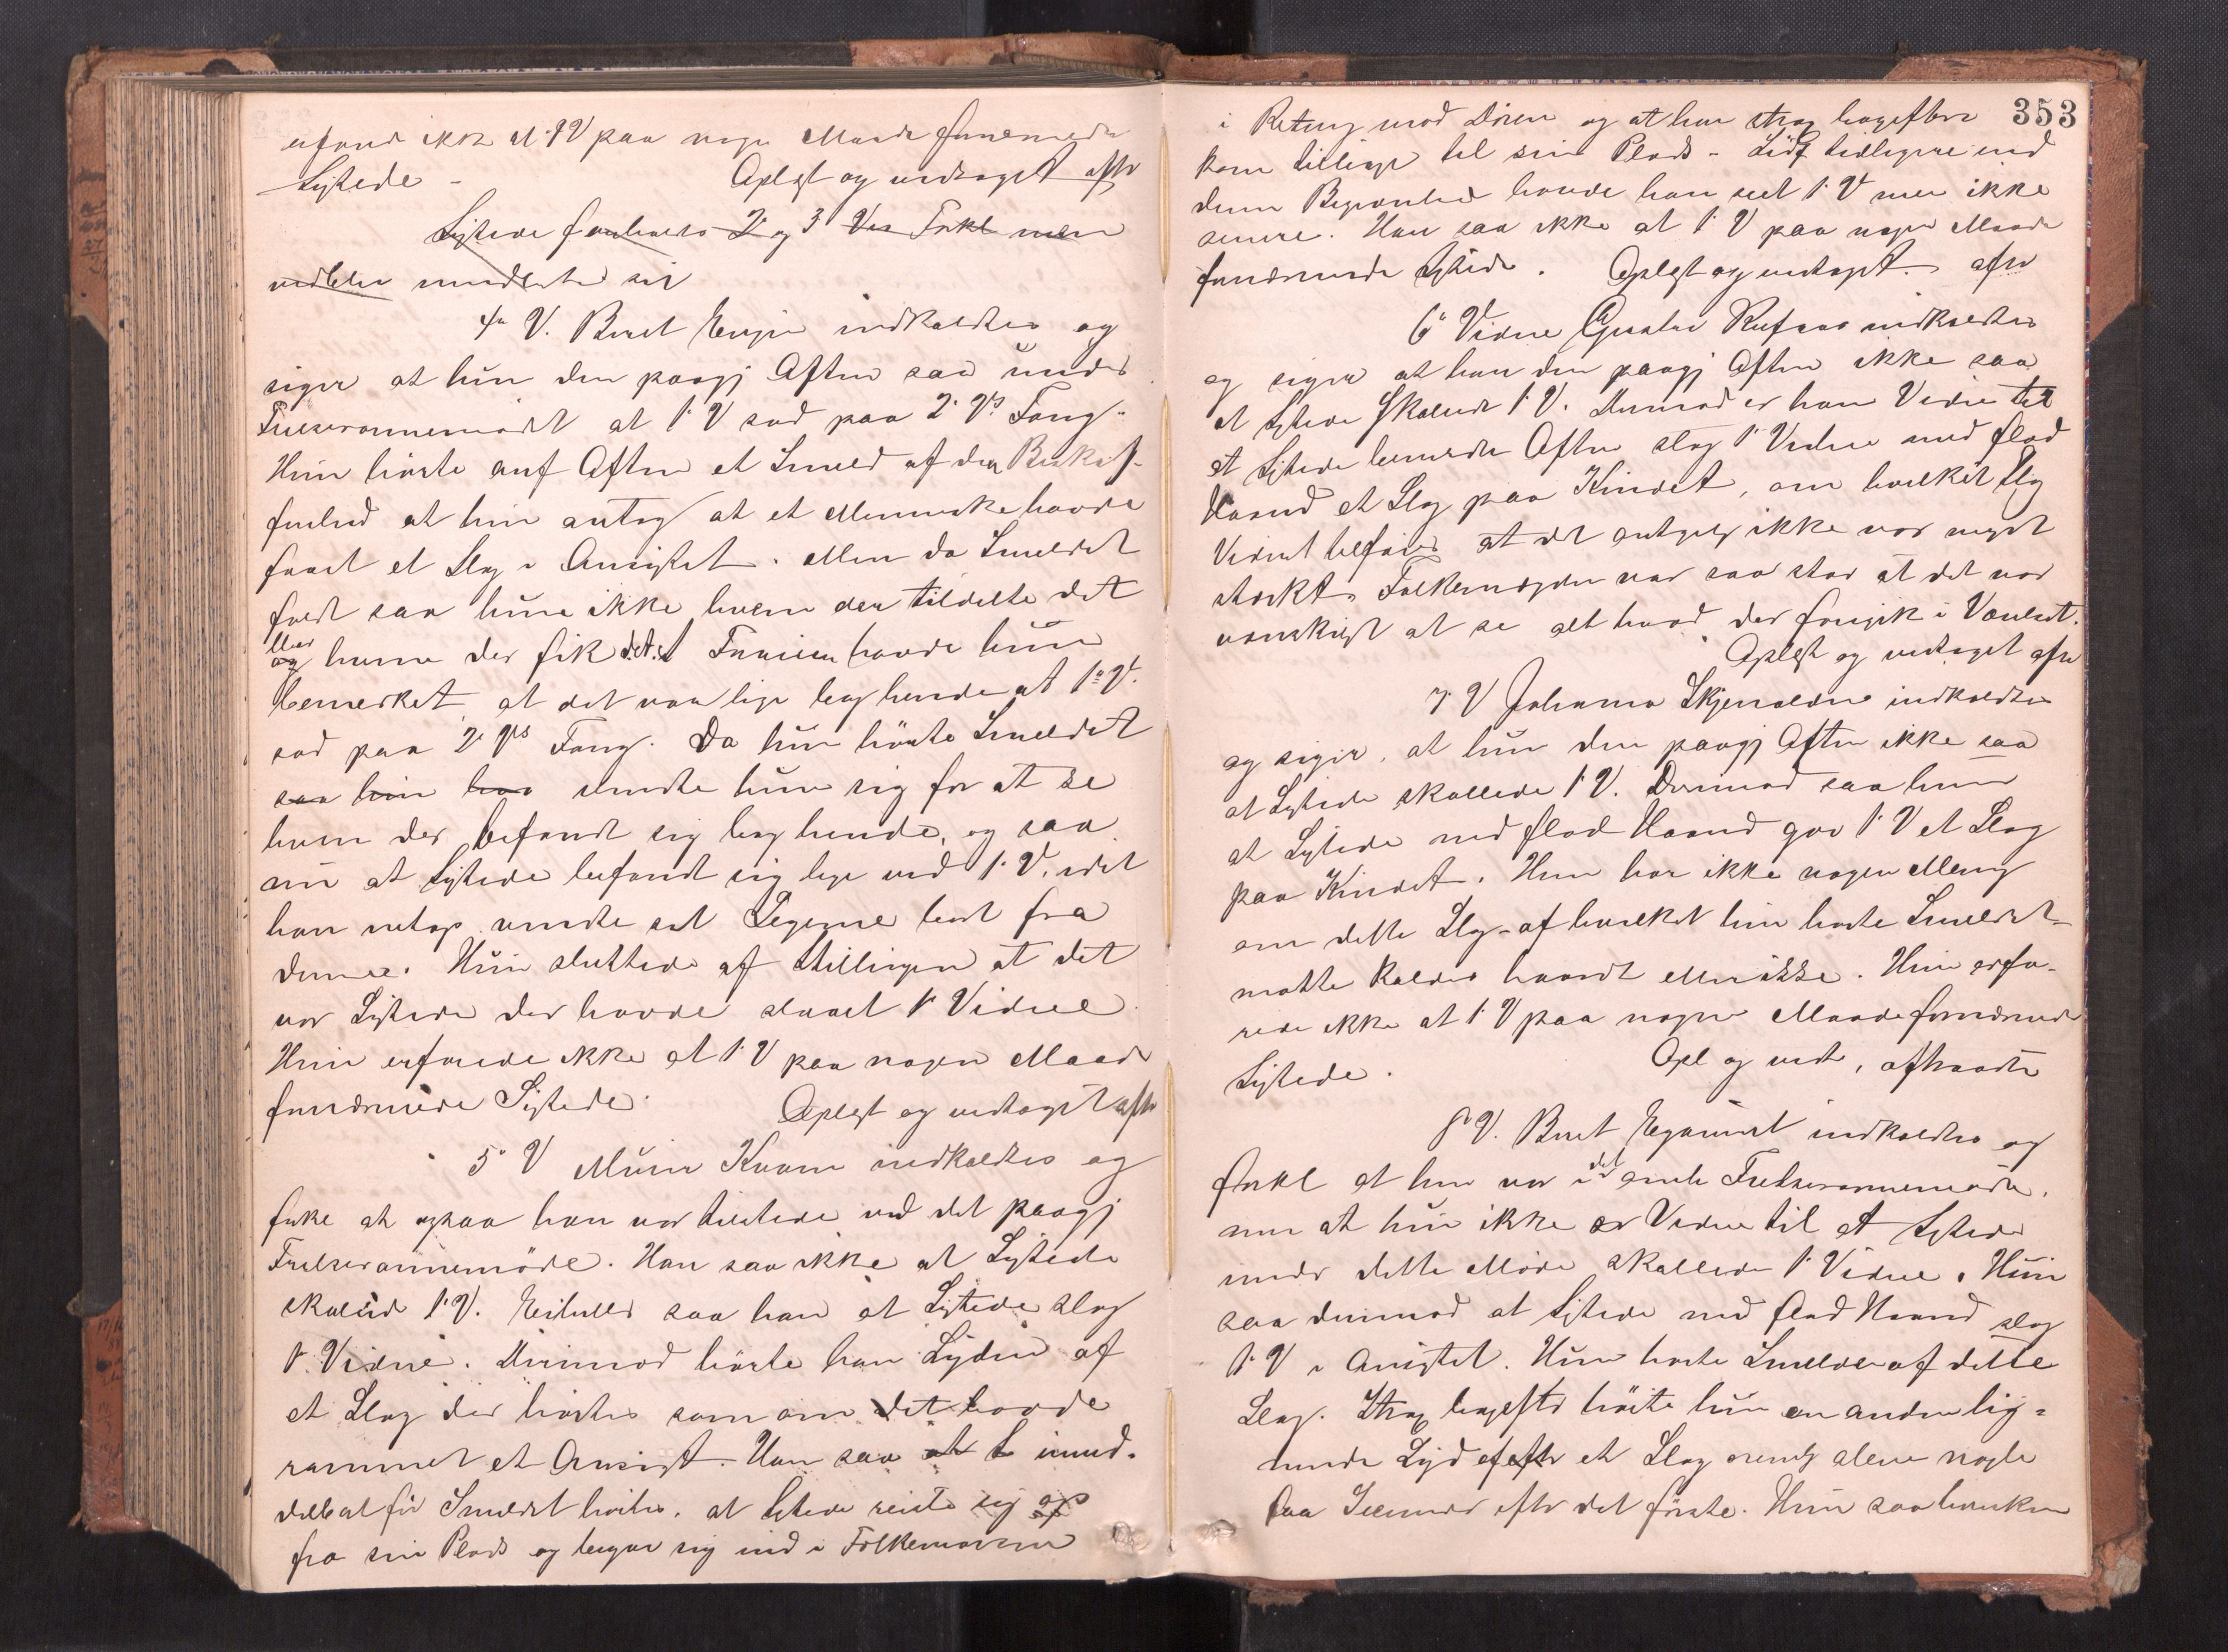 ikke at 1' V paa nogen Maade fornærmede
Sigtede - Oplæst og vedtaget aftr
Sigtede foreholdes 2' og 3' Vs Forkl men
vedblev
4' V. Beret indkaldtes og
siger at hun den paagj Aften saa under
Frelsesarmemødet at 1' V sad paa 2' Vs Fang.
Hun hørte anf Aften et Smeld af den Beskaf-
fenhed at hun antog at et Menneske havde
faaet et Slag i Ansigtet. Men da Smeldet
faldt saa hun ikke hvem der tildelte det
eller hvem der fik det. Forinden havde hun
bemerket at det var lige bag hende at 1' V.
sad paa 2' Vs Fang. Da hun hørte Smeldet
saa hun hvo vendte hun sig for at se
hvem der befandt sig bag hende, og saa
nu at Sigtede befandt sig lige ved 1' V, idet
han netop vendte sit Legeme bort fra
denne. Hun sluttede af Stillingen at det
var Sigtede der havde slaaet 1' Vidne.
Hun erfarede ikke at 1' V paa nogen Maade
fornærmede Sigtede. Oplæst og vedtaget aftr
5' V Kvam indkaldtes og
forkl at ogsaa han var tilstede ved det paagj
Frelsesarmemøde. Han saa ikke at Sigtede
skallede 1' V. Eiheller saa han at Sigtede slog
1' Vidne. Derimod hørte han Lyden af
et Slag der hørtes som om det havde
rammet et Ansigt. Han saa at S umid-
delbart før Smeldet hørtes, at Sigtede reiste sig op
fra sin Plads og begav sig ind i Folkemassen
353
i Retning mod Døren og at han strax bagefter
kom tilbage til sin Plads - Lidt tidligere end
denne Begivenhed havde han seet 1' V men ikke
senere. Han saa ikke at 1' V paa nogen Maade
fornærmede Sigtede. Oplæst og vedtaget. aftr
6' Vidne Gustav indkaldtes
og siger at han den paagj Aften ikke saa
at Sigtede skallede 1' V. Derimod er han Vidne til
at Sigtede bemeldte Aften slog 1' Vidne med flad
Haand et Slag paa Kindet, om hvilket Slag
Vidnet tilføier at det antagelig ikke var meget
sterkt. Folkemængden var saa stor at det var
vanskeligt at se alt hvad der foregik i Værelset.
Oplæst og vedtaget aftr
7' V Johanna indkaldtes
og siger, at hun den paagj Aften ikke saa
at Sigtede skallede 1' V. Derimod saa hun
at Sigtede med flad Haand gav 1' V et Slag
paa Kindet. Hun har ikke nogen Mening
om dette Slag - af hvilket hun hørte Smeldet -
maatte kaldes haardt eller ikke. Hun erfa-
rede ikke at 1' V paa nogen Maade fornærmede
Sigtede. Opl og vedt, aftraadte
8' V. Beret indkaldtes og
forkl at hun var i det omh Frelsesarmemøde,
men at hun ikke er Vidne til at Sigtede
under dette Møde skallede 1' Vidne. Hun
saa derimod at Sigtede med flad Haand slog
1' V i Ansigtet. Hun hørte Smeldet af dette
Slag. Strax bagefter hørte hun en anden lig-
nende Lyd af et Slag alene nogle
faa Secunder efter det første. Hun saa hverken